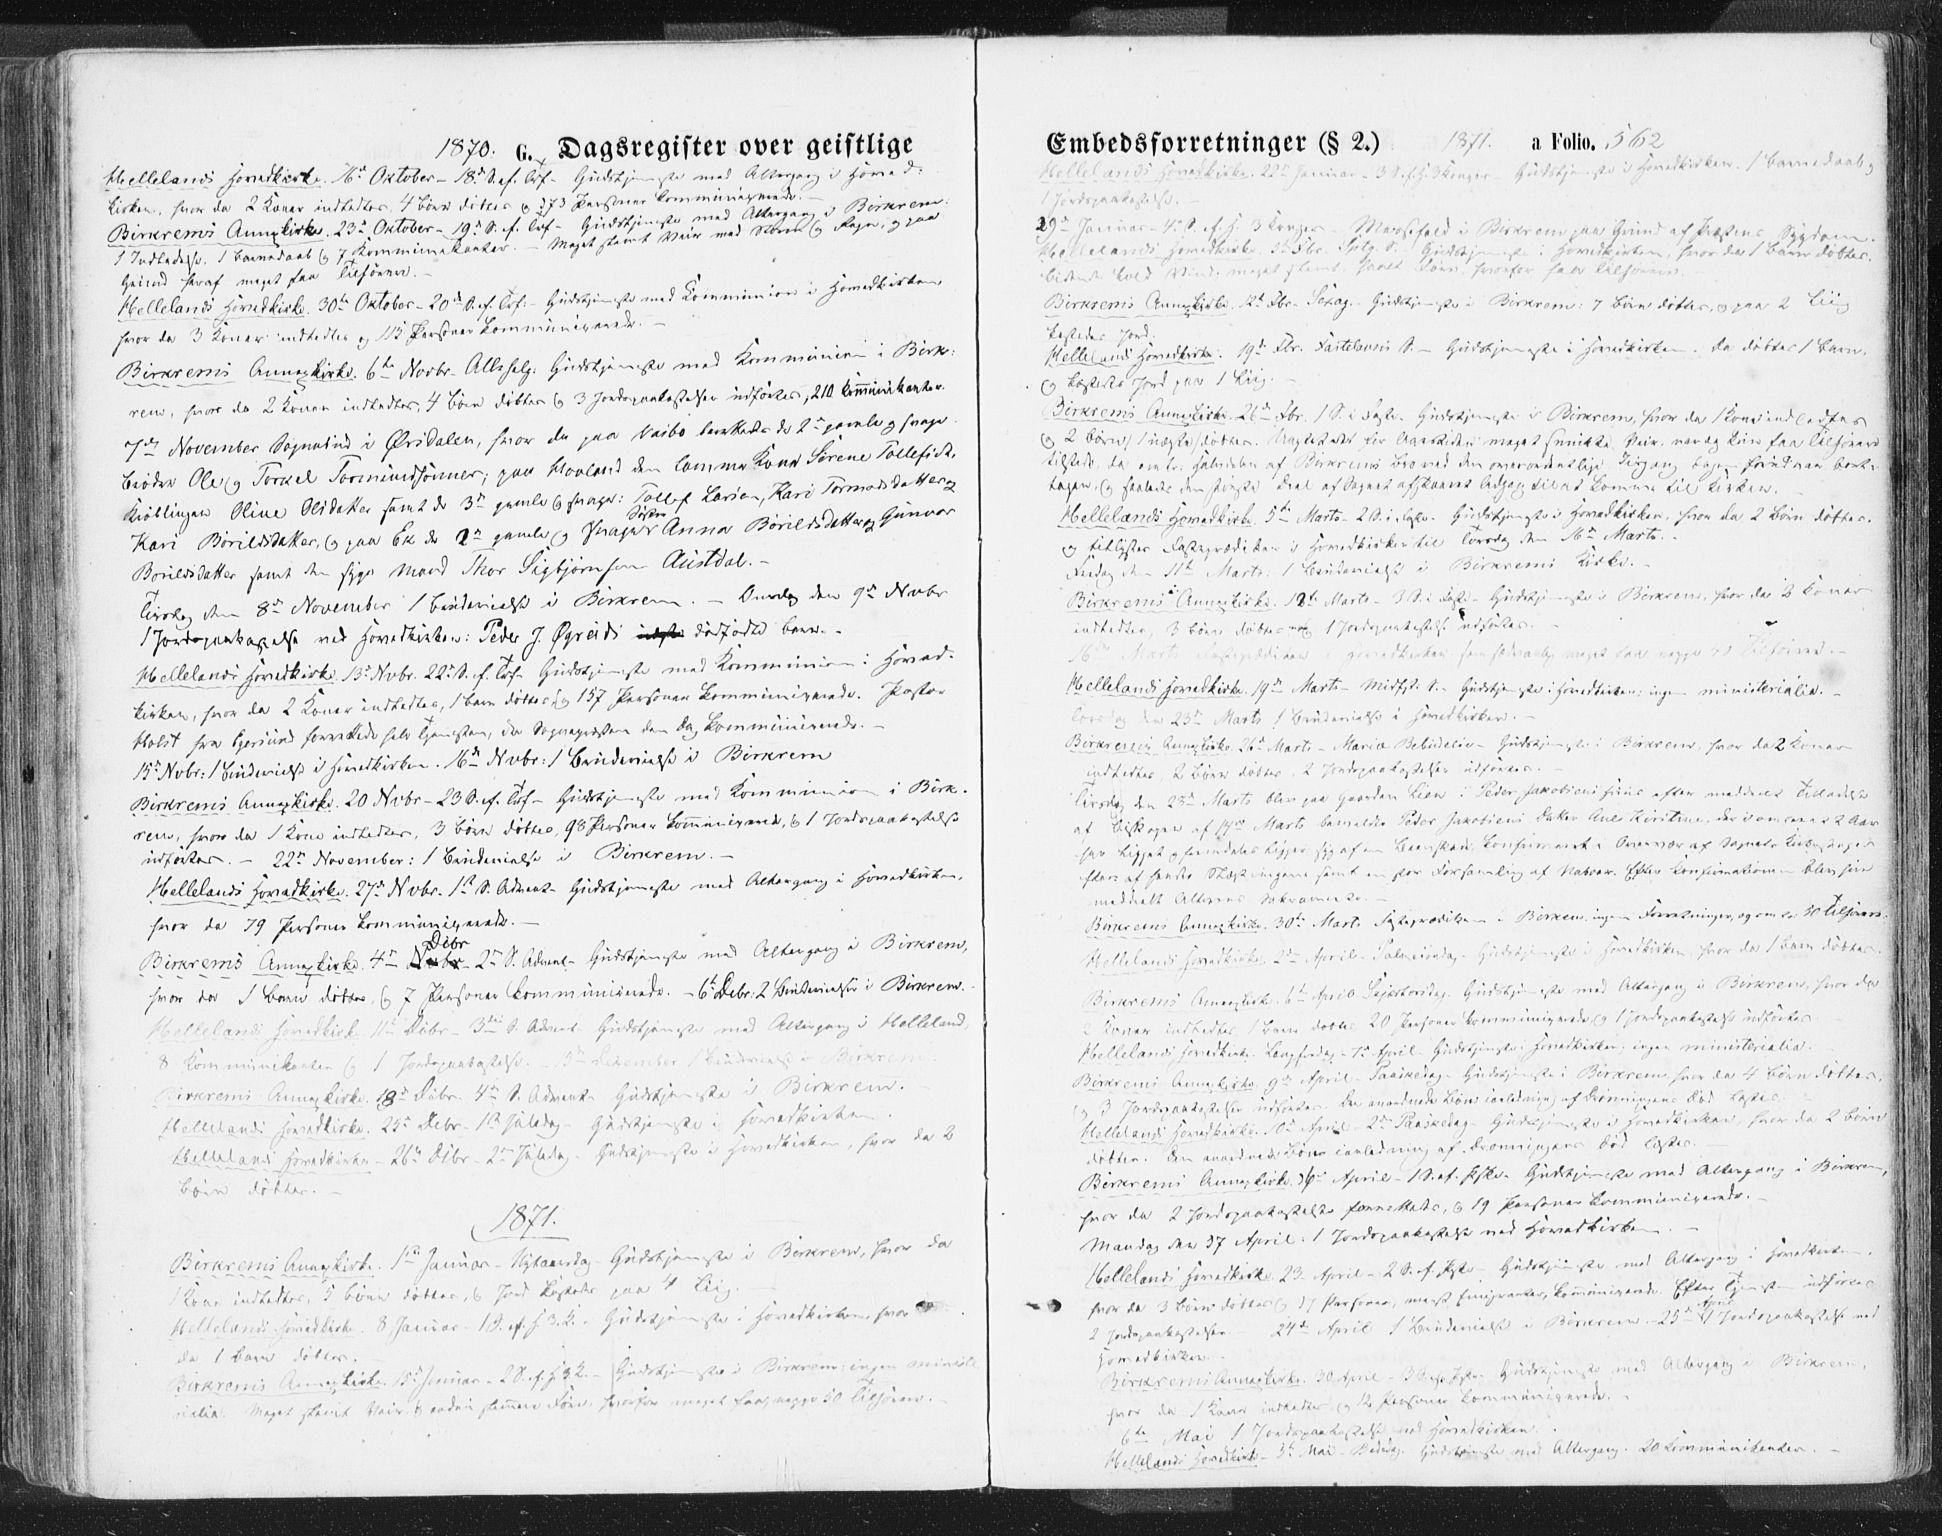 1870. G. Dagsregister over geistlige
Hellelands Hovedkirke. 16de Oktober - 18de S. ef. Trf - Gudstjeneste med Altergang i Hoved-
kirken, hvor da 2 Koner indledtes, 4 Børn døbtes og 373 Personer kommunicerede. -
Birkrems Annexkirke. 23de Oktober - 19de S. ef. Trf - Gudstjeneste med Altergang i Birkrem:
1 Indledelse, 1 Barnedaab og 7 Kommunikanter. - Meget slemt Veir med Storm og Regn, og paa
Grund heraf meget faa Tilhørere. -
Hellelands Hovedkirke. 30te Oktober - 20de S. ef. Trf. - Gudstjeneste med Kommunion i Hovedkirken,
hvor da 3 Koner indledtes og 115 Personer kommunicerede. -
Birkrems Annexkirke. 6te Novbr - Allehelg: Gudstjeneste med Kommunion i Birk-
rem, hvor da 2 Koner indledtes, 4 Børn døbtes og 3 Jordpaakastelser udførtes, 210 Kommunikanter.
7de November Sognebud i Ørsdalen, hvor da paa Vaibo berettedes de 2de gamle og svage
Brødre Ole og Torkel Tormundsønner; paa Hovland den lamme Kone Sirene Tollefsdt.
Kröblingen Oline Olsdatter samt de 3de gamle og svage: Tollef Larsen, Kari Tormodsdatter og
Kari Börildsdatter, og paa Ek de 2de gamle og svage Søstre Anna Börildsdatter og Gunvor
Börildsdatter samt den syge Mand Thor Sigbjörnsen Austdal. -
Tirsdag den 8de November 1 Brudevielse i Birkrem. - Onsdag den 9de Novbr
1 Jordpaakastelse ved Hovedkirken: Peder J. Øgreids dødfødte Barn. -
Hellelands Hovedkirke. 13de Novbr. 22de S. ef. Trf - Gudstjeneste med Kommunion i Hoved-
kirken, hvor da 2 Koner indledtes, 1 Barn døbtes, og 157 Personer kommunicerede. Pastor
Holst fra Egersund forrettede hele Tjenesten, da Sognepræsten den Dag kommunicerede. -
15de Nvbr: 1 Brudevielse i Hovedkirken. 16de Nvbr: 1 Brudevielse i Birkrem
Birkrems Annexkirke. 20 Nvbr - 23 S. ef. Trf - Gudstjeneste med Kommunion i Birk-
rem, hvor da 1 Kone indledtes, 3 Børn døbtes, 98 Personer kommunicerede, og 1 Jordpaakastelse
udførtes. - 22de November: 1 Brudevielse i Birkrem. -
Hellelands Hovedkirke. 27de Nvbr. 1ste S. Advent - Gudstjeneste med Altergang i Hovedkirken,
hvor da 79 Personer kommunicerede. -
Birkrems Annexkirke. 4de Dcbr - 2de S. Advent - Gudstjeneste med Altergang i Birkrem,
hvor da 1 Barn døbtes, og 7 Personer kommunicerede. - 6te Debr: 2 Brudevielser i Birkrem. -
Hellelands Hovedkirke 11te Dcbr - 3die S. Advent. Gudstjeneste med Altergang i Helleland,
8 Kommunikanter og 1 Jordpaakastelse. - 15de December 1 Brudevielse i Birkrem.
Birkrems Annexkirke. 18de Dcbr. 4de S. Advent - Gudstjeneste i Birkrem. -
Hellelands Hovedkirke. 25de Debr - 1ste Juledag - Gudstjeneste i Hovedkirken.
Hellelands Hovedkirke - 26de Dcbr - 2den Juledag - Gudstjeneste i Hovedkirken, hvor da 2
Børn døbtes. -
1871.
Birkrems Annexkirke. 1ste Januar - Nytaarsdag - Gudstjeneste i Birkrem, hvor da
1 Kone indledtes, 5 Børn døbtes, og Jord kastedes paa 4 Liig. -
Hellelands Hovedkirke. 8 Januar - 1 S. ef. H 3 K. - Gudstjeneste i Hovedkirken, hvor
da 1 Barn døbtes. -
Birkrems Annexkirke. 15de Januar - 2 S. ef. H 3 K. - Gudstjeneste i Birkrem; ingen ministe-
rialia. Meget slemt Veir og endnu slemmere Føre, hvorfor meget faa, neppe 50 Tilhørere. -
Embedsforretninger (§ 2.) 1871. a Folio. 562
Hellelands Hovedkirke. 22de Januar - 3 S. ef. H. 3 Konger - Gudstjeneste i Hovedkirken. 1 Barnedaab og
1 Jordpaakastelse. -
29de Januar - 4de S. ef. H. 3 Konger - Messefald i Birkrem paa Grund af Præstens Sygdom.
Hellelands Hovedkirke. 5te Fbr. Sptg. S. - Gudstjeneste i Hovedkirken, hvor da 1 Barn døbtes.
Birkrems Annexkirke. 12te Fbr - Sexag. - Gudstjeneste i Birkrem: 7 Børn døbtes, og paa 2 Liig
kastedes Jord.
Hellelands Hovedkirke. 19de Fbr. Fastelavns S. - Gudstjeneste i Hovedkirken. Da døbtes 1 Barn,
og kastedes Jord paa 1 Liig. -
Birkrems Annexkirke. 26de Fbr. 1 S. i Faste. Gudstjeneste i Birkrem, hvor da 1 Kone indledtes
og 2 Børn døbtes. meget smukke Veir, var dog kun faa Tilhørere
tilstede, da af Birkrems Bro ved den overordentlige Iisgang bort-
tagen, og saaledes den største Deel af Sognet afskaaret Adgang til at komme til Kirken. -
Hellelands Hovedkirke. 5te Marts - 2 S. i Faste. Gudstjeneste i Hovedkirken, hvor da 2 Børn døbtes.
og tillystes Fasteprædiken i Hovedkirken til Torsdag den 16de Marts. -
Lørdag den 11te Marts: 1 Brudevielse i Birkrems Kirke. -
Birkrems Annexkirke. 12te Marts - 3 S. i Faste - Gudstjeneste i Birkrem, hvor da 2 Koner
indledtes, 3 Børn døbtes og 1 Jordpaakastelse udførtes. -
16de Marts Fasteprædiken i Hovedkirken som sædvanlig meget faa neppe 40 Tilhørere. -
Hellelands Hovedkirke. 19de Marts - Midfst. S. - Gudstjeneste i Hovedkirken; ingen ministerialia. -
Torsdag den 23de Marts 1 Brudevielse i Hovedkirken. -
Birkrems Annexkirke. 26de Marts - Mariæ Bebudelse - Gudstjeneste i Birkrem, hvor da 2 Koner
indledtes, 2 Børn døbtes, 2 Jordpaakastelser udførtes. -
Tirsdag den 28de Marts blev paa Gaarden Lien i Peder Jakobsens Huus efter meddeelt Tilladelse
af Biskopen af 14de Marts bemeldte Peder Jakobsens Datter Ane Kirstine, der i omtrent 2 Aar
har ligget og fremdeles ligger syg af en Beenskade, konfirmeret i Overvær af Sognets
samt en stor Forsamling af Naboer. Efter Konfirmationen blev hun
meddeelt Alterens Sakramente. -
Birkrems Annexkirke. 30te Marts Fasteprædiken i Birkrem, ingen Forretninger, og omtr. 30 Tilhørere.
Hellelands Hovedkirke. 2den April - Palmesøndag - Gudstjeneste i Hovedkirken, hvor da 1 Barn døbtes.
Birkrems Annexkirke. 6te April Skjærtorsdag. Gudstjeneste med Altergang i Birkrem, hvor da
2 Koner indledtes, 1 Barn døbtes 20 Personer kommunicerede, og 1 Jordpaakastelse udførtes.
Hellelands Hovedkirke. Langfredag - 7de April. Gudstjeneste i Hovedkirken; ingen ministerialia. -
Birkrems Annexkirke. 9de April - Paaskedag - Gudstjeneste i Birkrem, hvor da 4 Børn døbtes,
og 3 Jordpaakastelser udførtes. Den anordnede Bøn i anledning af Dronningens Død læstes. -
Hellelands Hovedkirke. 10de April - 2den Paaskedag - Gudstjeneste i Hovedkirken, hvor da 2 Børn
døbtes. Den anordnede Bøn i anledning af Dronningens Død læstes. -
Birkrems Annexkirke. 16de April - 1 S. ef. Pske. Gudstjeneste med Altergang i Birkrem,
hvor da 2 Jordpaakastelser forrettedes, og 19 Personer kommunicerede. -
Mandag den 17 April: 1 Jordpaakastelse ved Hovedkirken. -
Hellelands Hovedkirke. 23 April - 2 S. ef. Pske - Gudstjeneste med Altergang i Hovedkirken,
hvor da 3 Børn døbtes og 37 Personer, mest Emigranter, kommunicerede. Efter Tjenesten udførtes
2 Jordpaakastelser. - 24de April 1 Brudevielse i Birkrem. - 25de April 1 Jordpaakastelse ved
Hovedkirken. -
Birkrems Annexkirke. 30 April - 3 S. ef. Pske - Gudstjeneste med Altergang i Birkrem,
hvor da 1 Kone indledtes og 12 Personer kommunicerede. -
6te Mai 1 Jordpaakastelse ved Hovedkirken.
Hellelands Hovedkirke - 5te Mai - Bededag. Gudstjeneste med Altergang. 20 Kommunikanter. -